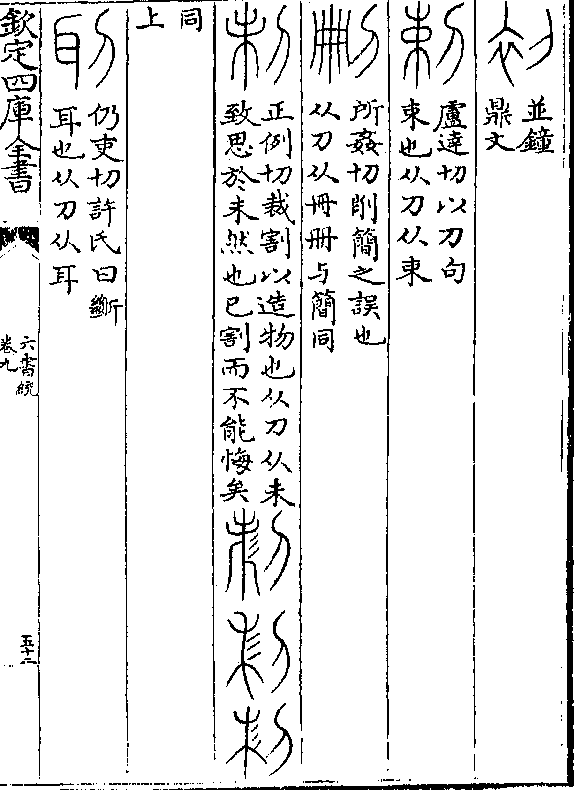 並鐘
鼎文
剌
盧達切以刀句
束也从刀从束
刪
所姦切削簡之誤也
从刀从冊冊与簡同
制
正例切裁割以造物也从刀从未
致思於未然也已割而不能悔矣
同
上
刵
仍吏切許氏曰斷
耳也从刀从耳
欽定四庫全書
六書統
卷九
五十二